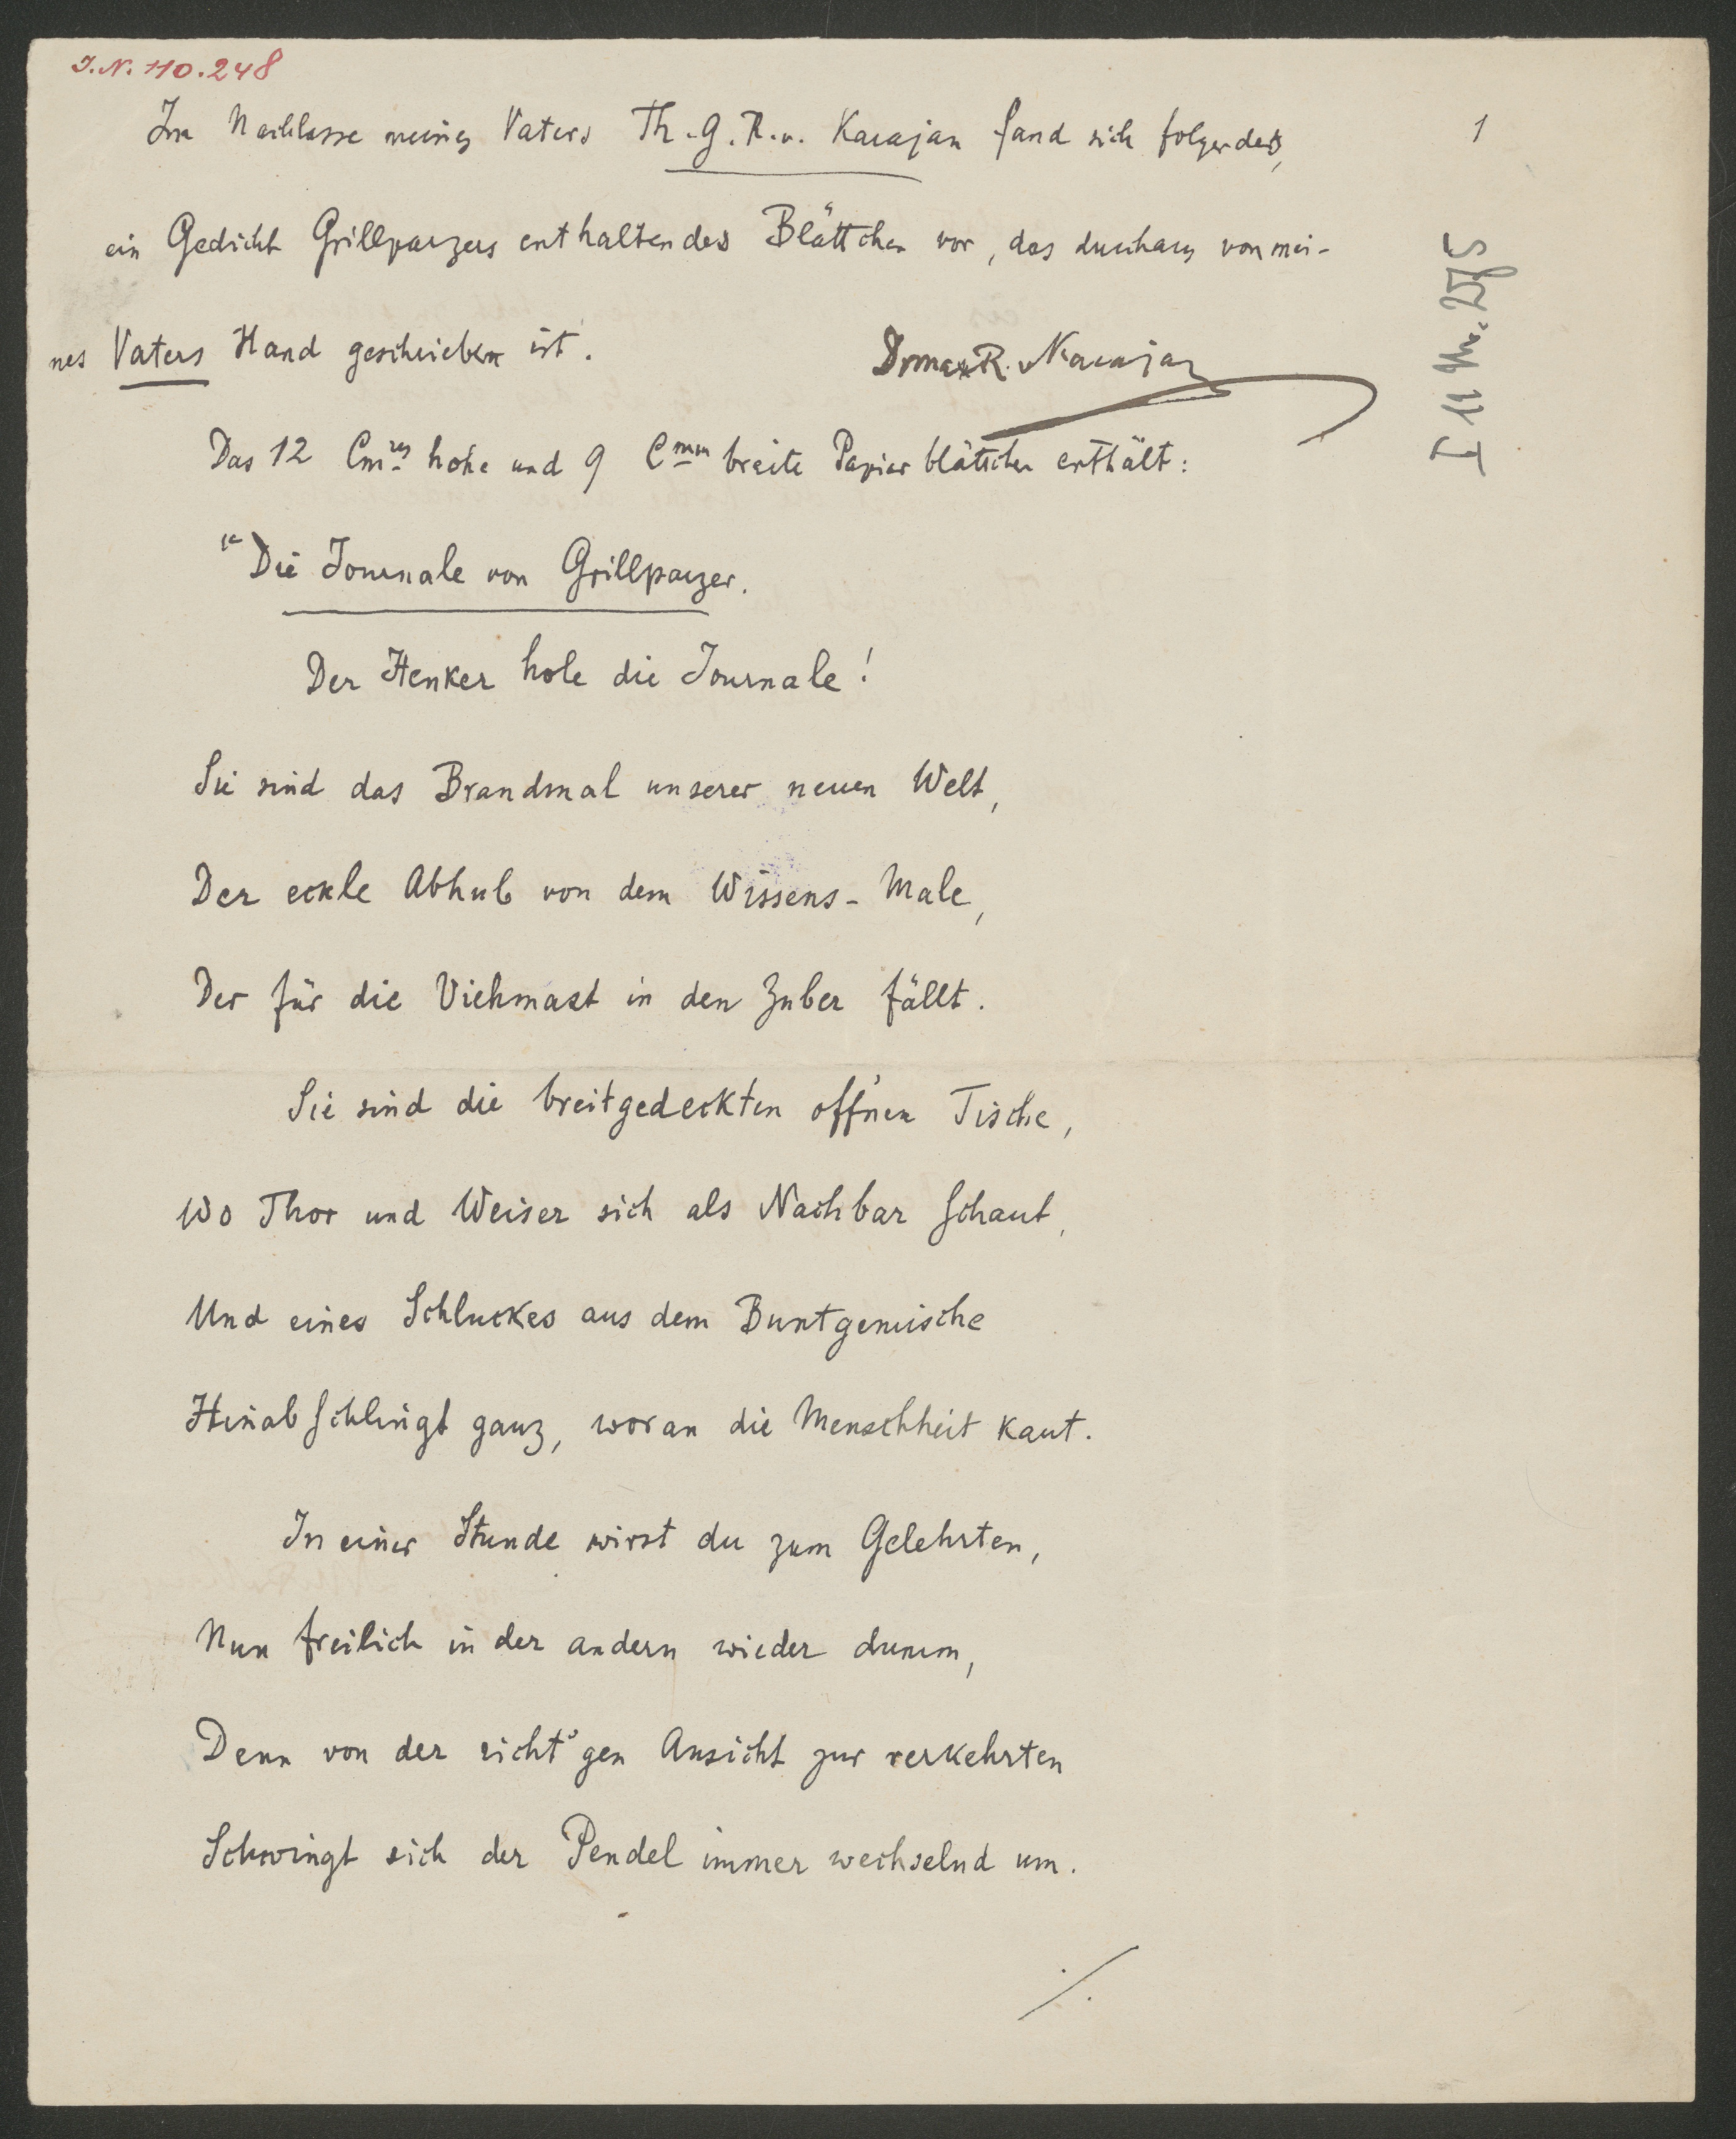 I.N. 110.248
Im Nachlasse meines Vaters Th. G. R. v. Karajan fand sich folgendes,
1
ein Gedicht Grillparzers enthaltendes Blättchen vor, das durchaus von mei-
nes Vaters Hand geschrieben ist.
Dr Max R. v Karajan
Das 12 Cmres hohe und 9 Cmm breite Papierblättchen enthält:
"Die Journale von Grillparzer.
Der Henker hole die Journale!
Sie sind das Brandmal unserer neuen Welt,
Der eckle Abhub von dem Wissens-Male,
Der für die Viehmast in den Zuber fällt.
Sie sind die breitgedeckten off'nen Tische,
Wo Thor und Weiser sich als Nachbar schaut,
Und eines Schluckes aus dem Buntgemische
Hinabschlingt ganz, woran die Menschheit kaut.
In einer Stunde wirst du zum Gelehrten,
Nun freilich in der andern wieder dumm,
Denn von der richt'gen Ansicht zur verkehrten
Schwingt sich der Pendel immer wechselnd um.
./.